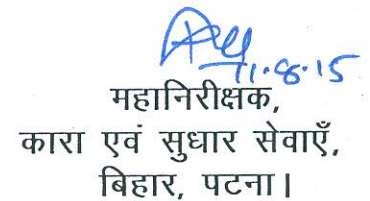 11.8.15
महानिरीक्षक,
कारा एवं सुधार सेवाएँ,
बिहार, पटना।